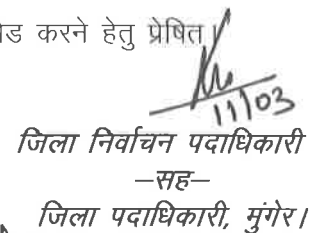 करने हेतु प्रेषित।
11/03
जिला निर्वाचन पदाधिकारी
–सह–
जिला पदाधिकारी, मुंगेर।